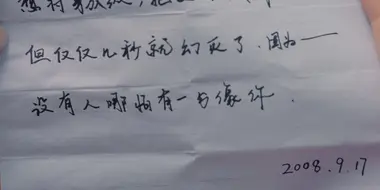 但仅仅几秒就幻灭了.因为——
没有人哪怕有一点像你.
2008.9.17